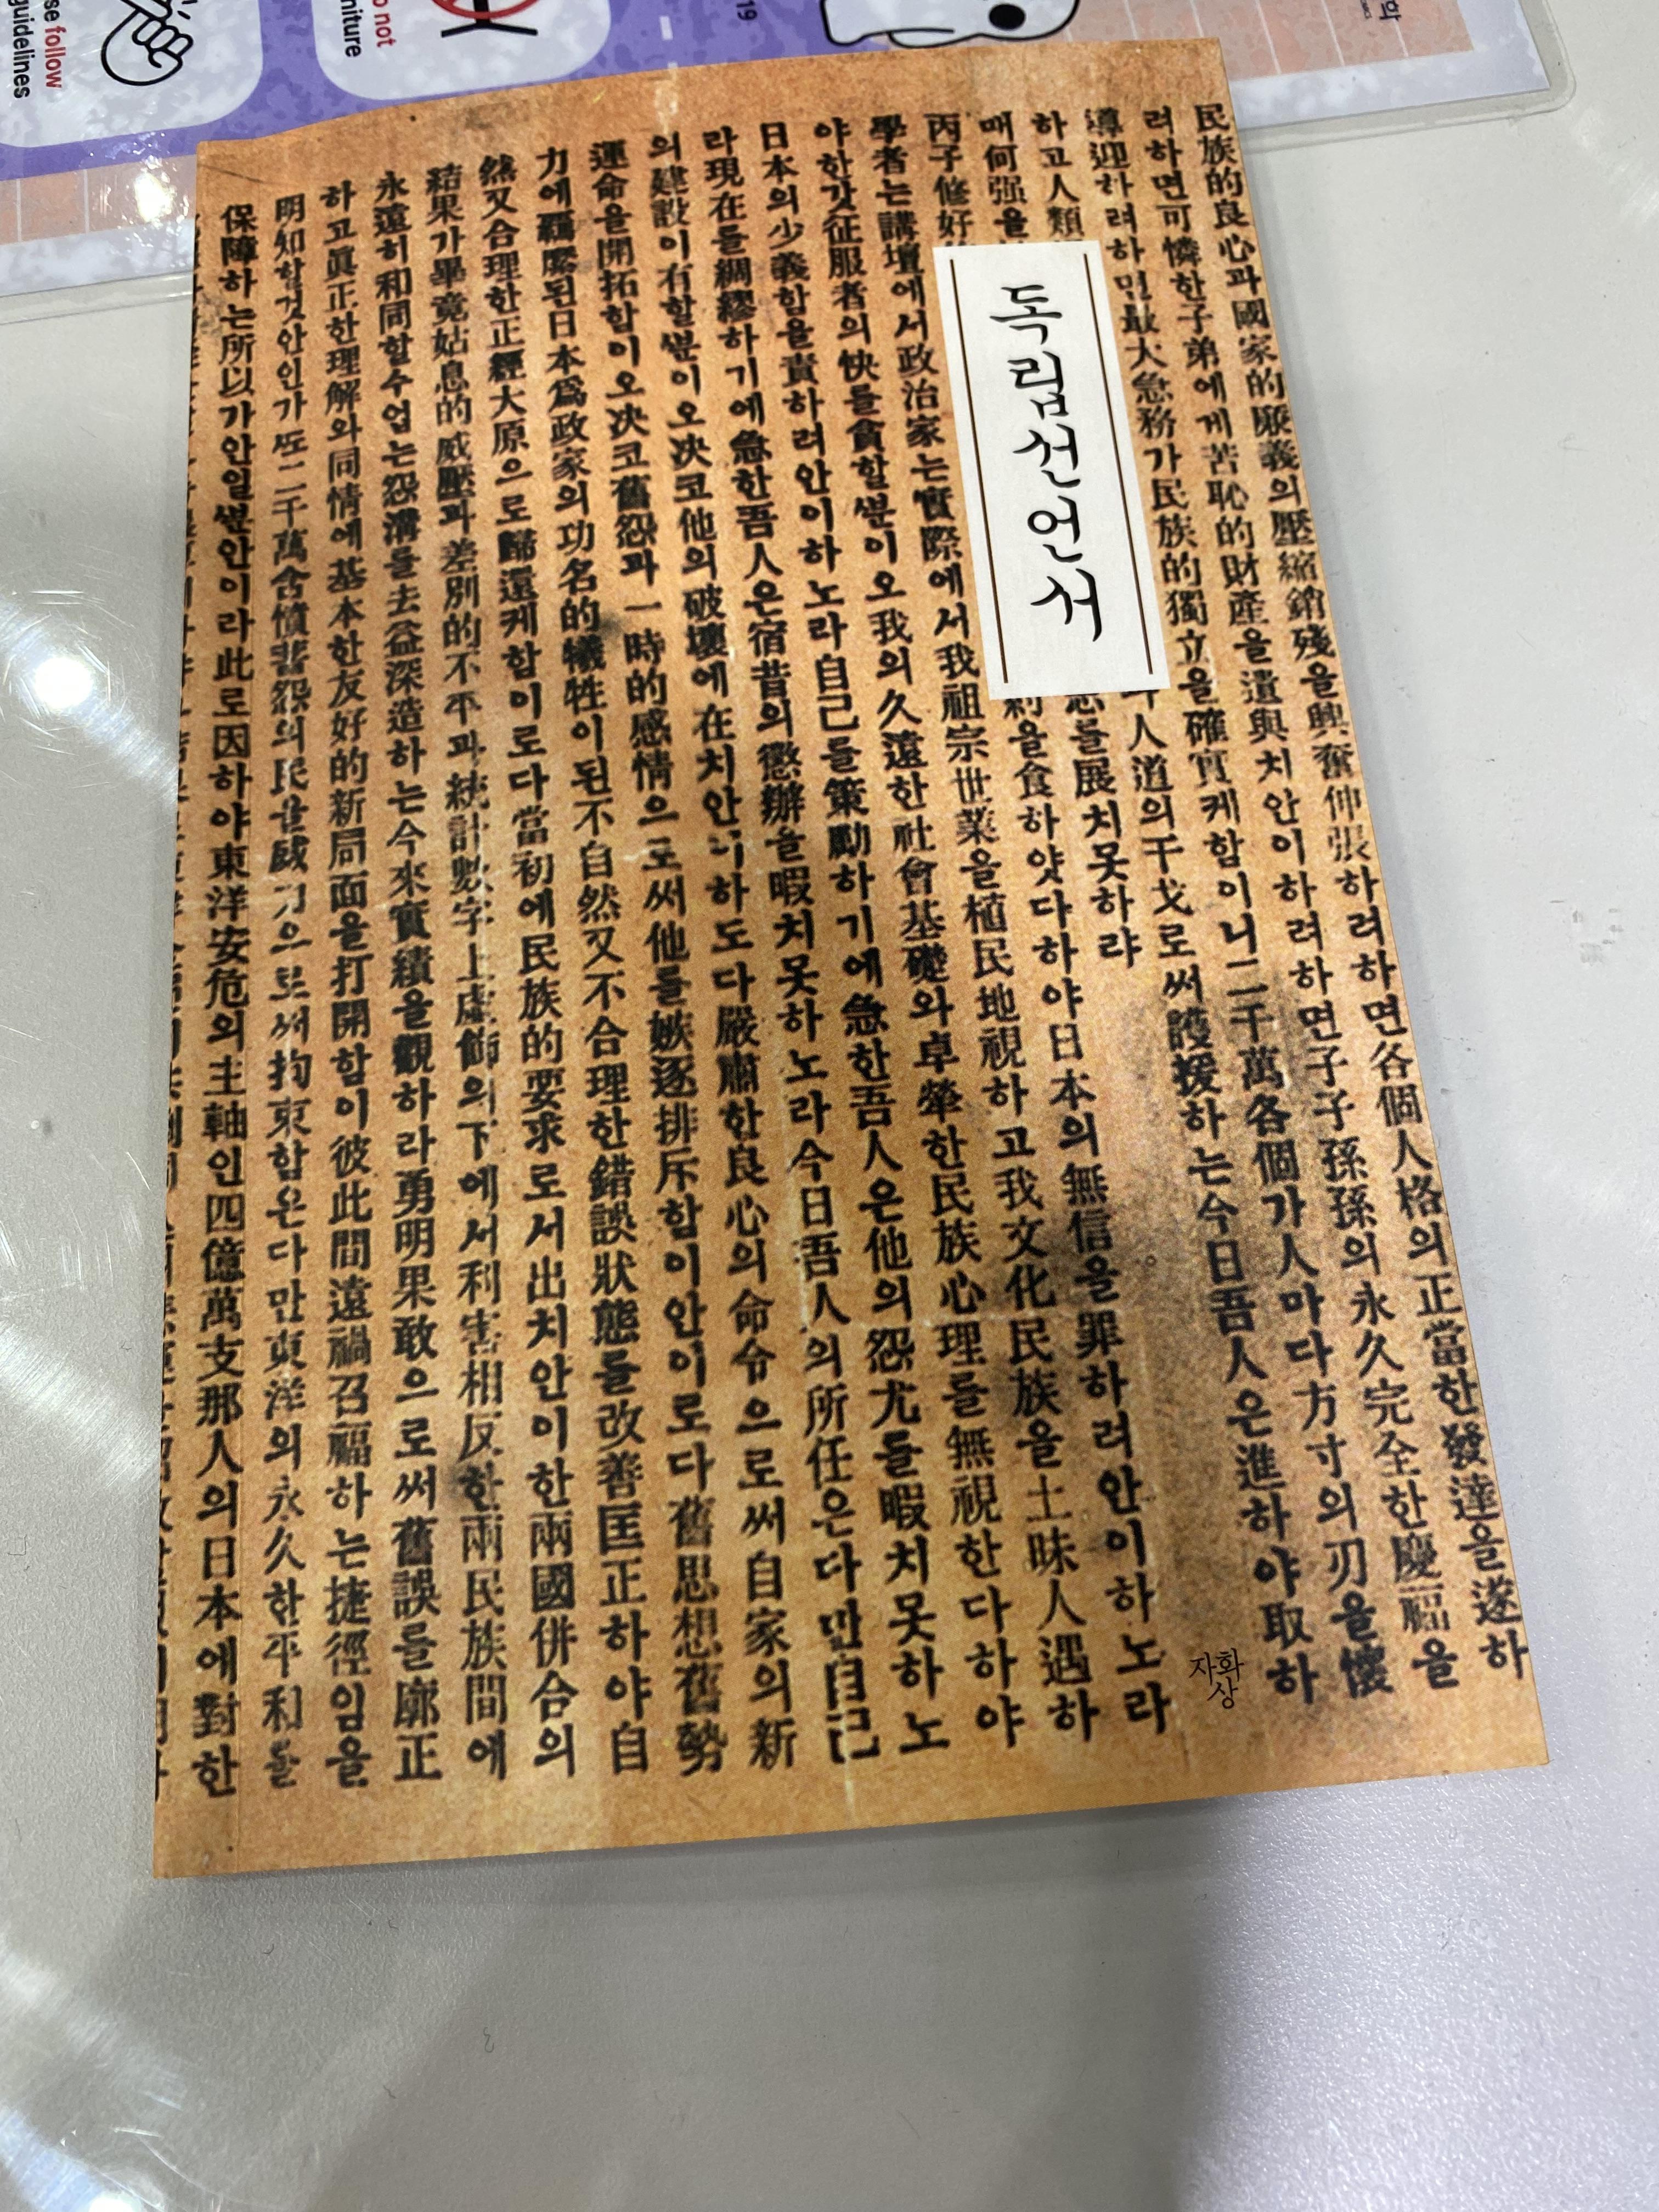 se follow
guidelines
o not
niture
19
학
독립선언서
民族的良心과國家的廉義의壓縮銷殘을興奮伸張하려하면各個人格의正當한發達을遂하
려하면可憐한子弟에게苦恥的財産을遺與치안이하려하면子子孫孫의永久完全한慶福을
導迎하려하면最大急務가民族的獨立을確實케함이니二千萬各個가人마다方寸의刃을懷
하고人類 人道의干戈로써護援하는今日吾人은進하야取하
매何强을 를展치못하랴
丙子修好 約을食하얏다하야日本의無信을罪하려안이하노라
學者는講壇에서政治家는實際에서我祖宗世業을植民地視하고我文化民族을土昧人遇하
야한갓征服者의快를貪할ᄲᅮᆫ이오我의久遠한社會基礎와卓犖한民族心理를無視한다하야
日本의少義함을責하려안이하노라自己를策勵하기에急한吾人은他의怨尤를暇치못하노
라現在를綢繆하기에急한吾人은宿昔의懲辦을暇치못하노라今日吾人의所任은다만自己
의建設이有할ᄲᅮᆫ이오决코他의破壞에在치안이하도다嚴肅한良心의命令으로써自家의新
運命을開拓함이오决코舊怨과一時的感情으로써他를嫉逐排斥함이안이로다舊思想舊勢
力에羈縻된日本爲政家의功名的犧牲이된不自然又不合理한錯誤狀態를改善匡正하야自
然又合理한正經大原으로歸還케함이로다當初에民族的要求로서出치안이한兩國併合의
結果가畢竟姑息的威壓과差別的不平과統計數字上虛飾의下에서利害相反한兩民族間에
永遠히和同할수업는怨溝를去益深造하는今來實績을觀하라勇明果敢으로써舊誤를廓正
하고眞正한理解와同情에基本한友好的新局面을打開함이彼此間遠禍召福하는捷徑임을
明知할것안인가ᄯᅩ二千萬含憤蓄怨의民을威力으로써拘束함은다만東洋의永久한平和를
保障하는所以가안일ᄲᅮᆫ안이라此로因하야東洋安危의主軸인四億萬支那人의日本에對한
자화상